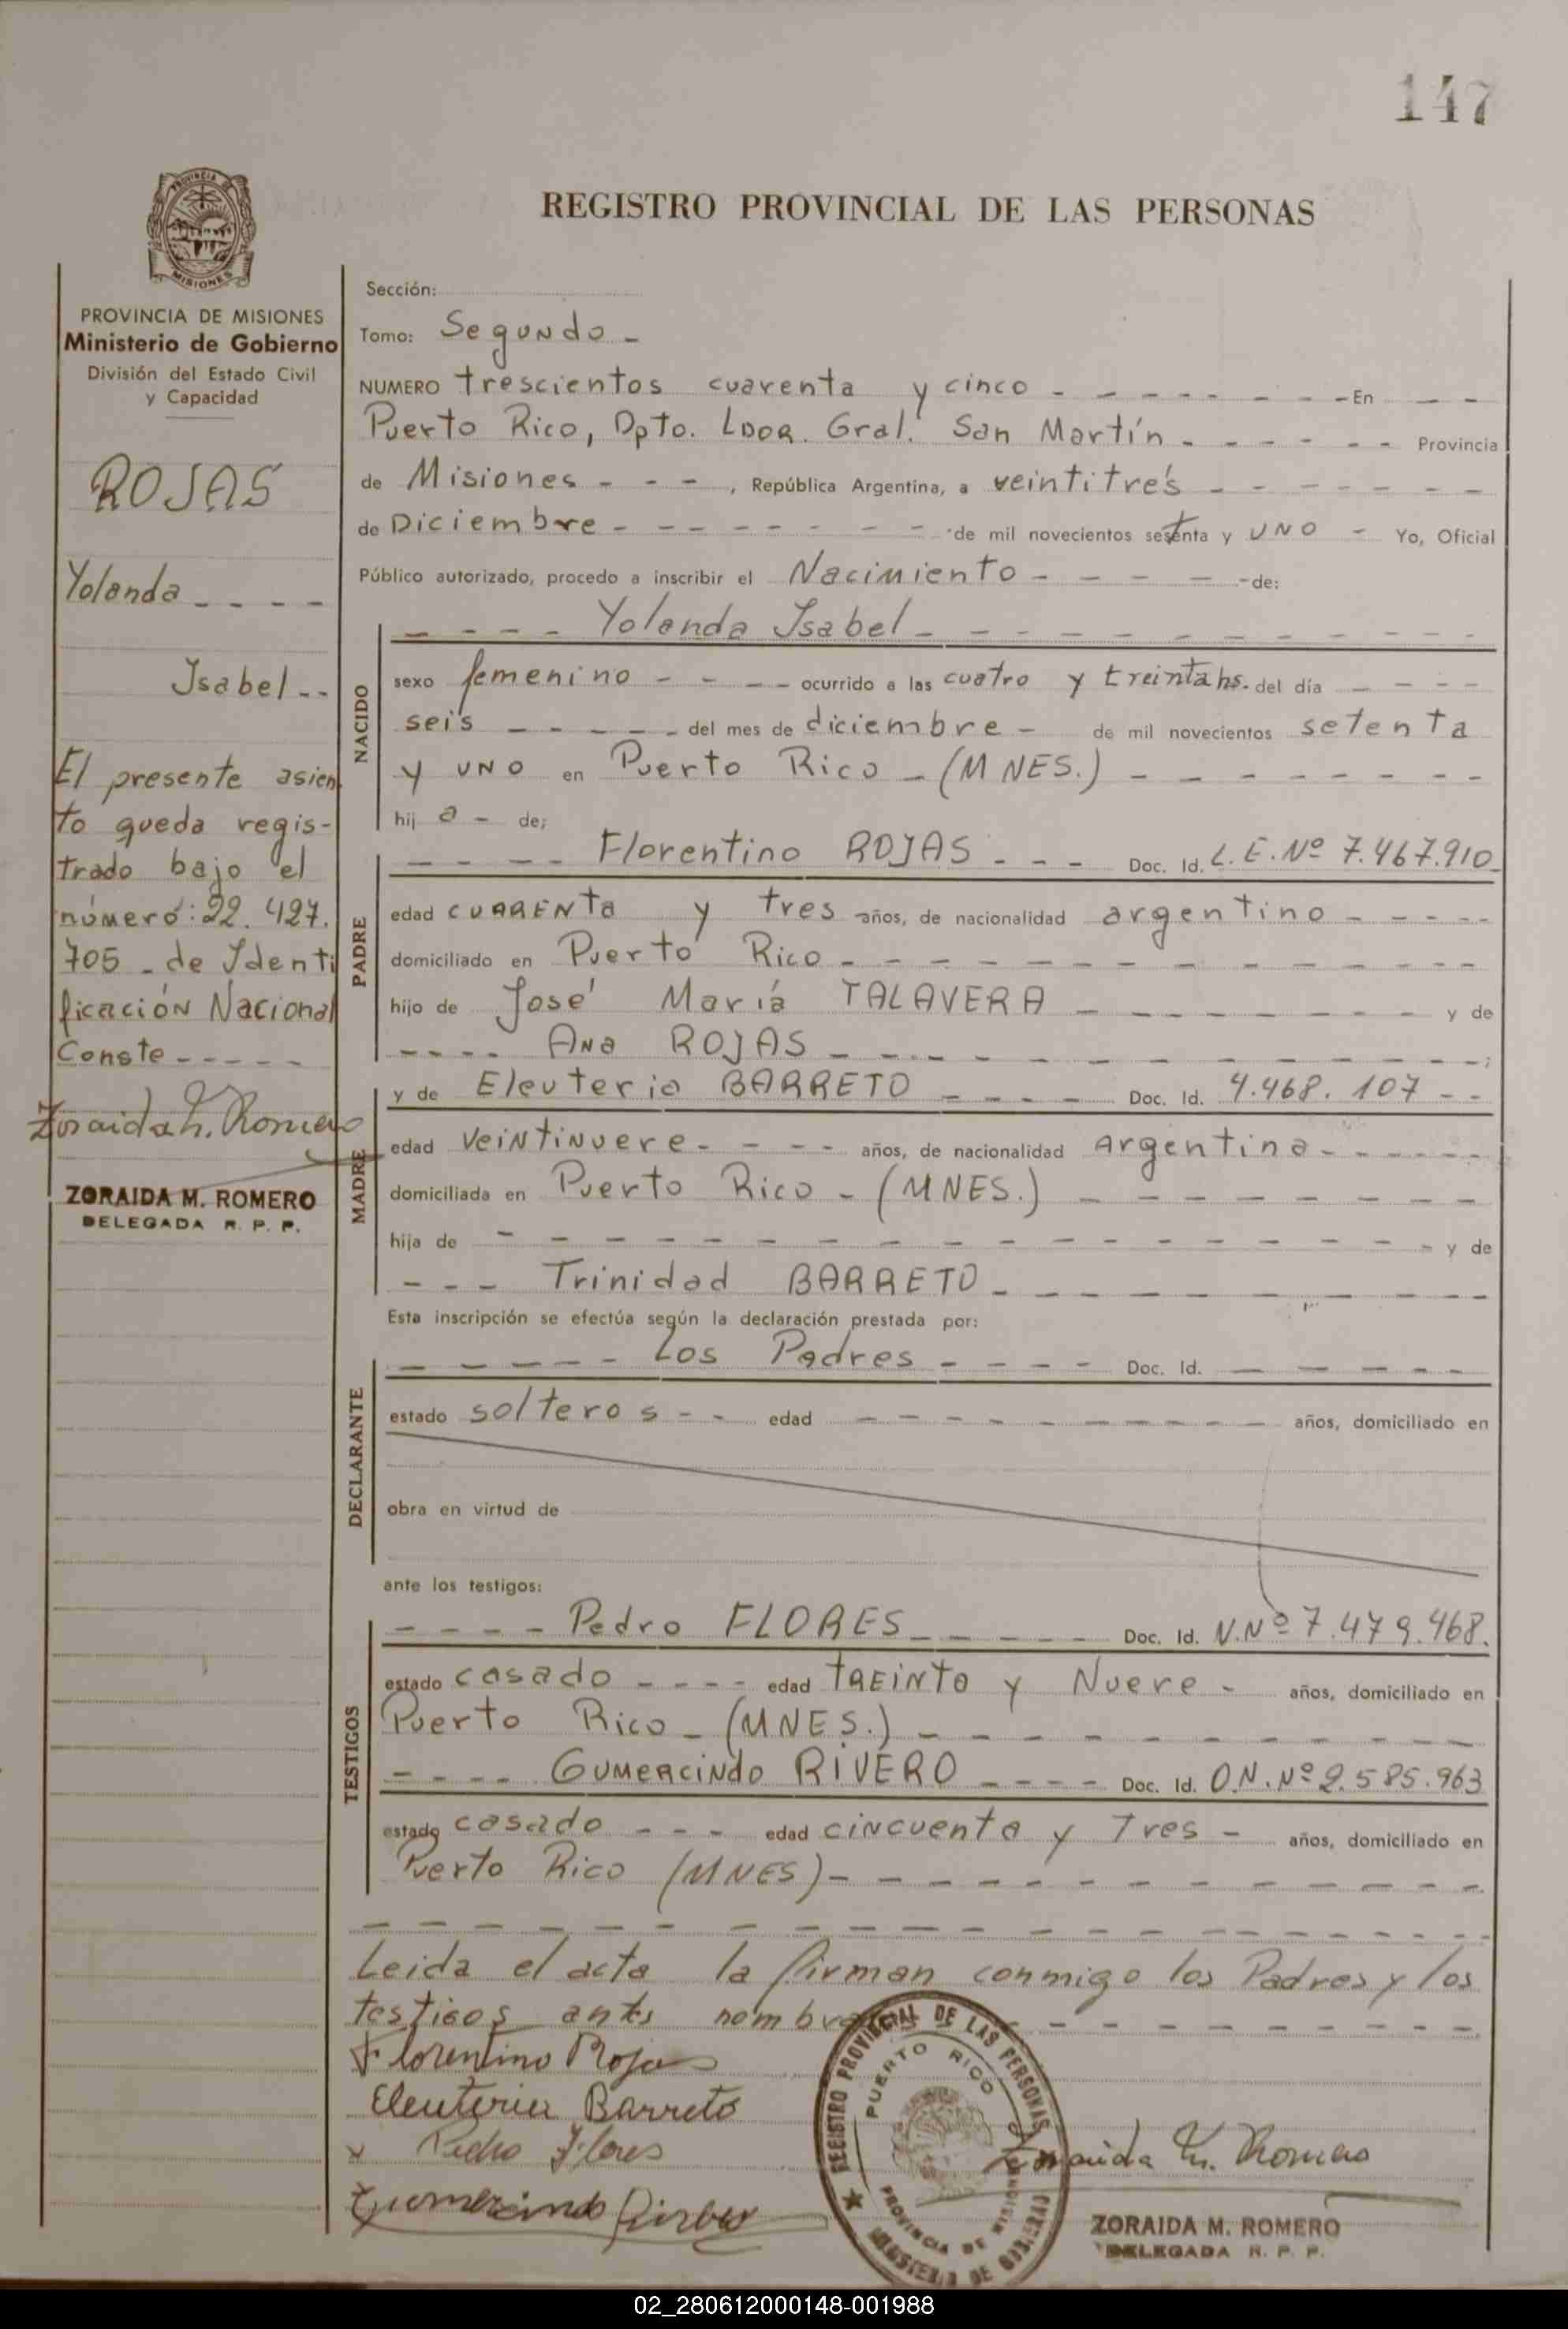 147
PROVINCIA DE
MISIONES
REGISTRO PROVINCIAL DE LAS PERSONAS
PROVINCIA DE MISIONES
Ministerio de Gobierno
División del Estado Civil
y Capacidad
ROJAS
Yolanda - - - -
Isabel - -
El presente asien
to queda regis-
trado bajo el
número: 22.427.
705 - de Identi
ficación Nacional
Conste - - - - -
Zoraida M. Romero
ZORAIDA M. ROMERO
DELEGADA R. P. P.
Sección:
Tomo: Segundo -
NUMERO trescientos cuarenta y cinco - - - - - - - - En - -
Puerto Rico, Dpto. LDOR. Gral. San Martín - - - - - - Provincia
de Misiones - - - , República Argentina, a veintitrés - - - - - - -
de Diciembre - - - - - - - - de mil novecientos setenta y UNO - Yo, Oficial
Público autorizado, procedo a inscribir el Nacimiento - - - - - de:
- - - - Yolanda Isabel - - - - - - - - - - -
NACIDO
sexo femenino - - - - ocurrido a las cuatro y treinta hs. del día - - - -
seis - - - - - del mes de diciembre - de mil novecientos setenta
y UNO en Puerto Rico - (MNES.) - - - - - - - -
hij a - de;
PADRE
- - - - Florentino ROJAS - - - Doc. Id. L.E. Nº 7.467.910
edad CUARENTa y tres años, de nacionalidad argentino - - - - -
domiciliado en Puerto Rico - - - - - - - - - - - -
hijo de José María TALAVERA - - - - - - - y de
- - - - Ana ROJAS - - - - - - - - - - - - ;
MADRE
y de Eleuteria BARRETO - - - - Doc. Id. 4.468.107 - -
edad veintinueve - - - - años, de nacionalidad argentina - - - - - -
domiciliada en Puerto Rico - (MNES.) - - - - - - -
hija de - - - - - - - - - - - - - - - - - y de
- - - Trinidad BARRETO - - - - - - - - -
Esta inscripción se efectúa según la declaración prestada por:
DECLARANTE
- - - - - Los Padres - - - - Doc. Id. - - - - -
estado solteros - - edad - - - - - - - - años, domiciliado en
obra en virtud de
ante los testigos:
TESTIGOS
- - - - Pedro FLORES - - - - - Doc. Id. N. Nº 7.479.468.
estado casado - - - - edad TREINTa y Nueve - años, domiciliado en
Puerto Rico - (MNES.) - - - - - - - - - -
- - - - GUMERCINDO RIVERO - - - - Doc. Id. O.N. Nº 2.585.963
estado casado - - - edad cincuenta y Tres - años, domiciliado en
Puerto Rico (MNES) - - - - - - - - - - - -
- - - - - - - - - - - - - - - - - - - -
Leida el acta la firman conmigo los Padres y los
testigos antes - - - - - - - - -
Florentino Rojas
Eleuteria Barreto
x Pedro Flores
REGISTRO PROVINCIAL DE LAS PERSONAS
PUERTO RICO
PROVINCIA DE MISIONES
Zoraida M. Romero
ZORAIDA M. ROMERO
DELEGADA R. P. P.
02_280612000148-001988